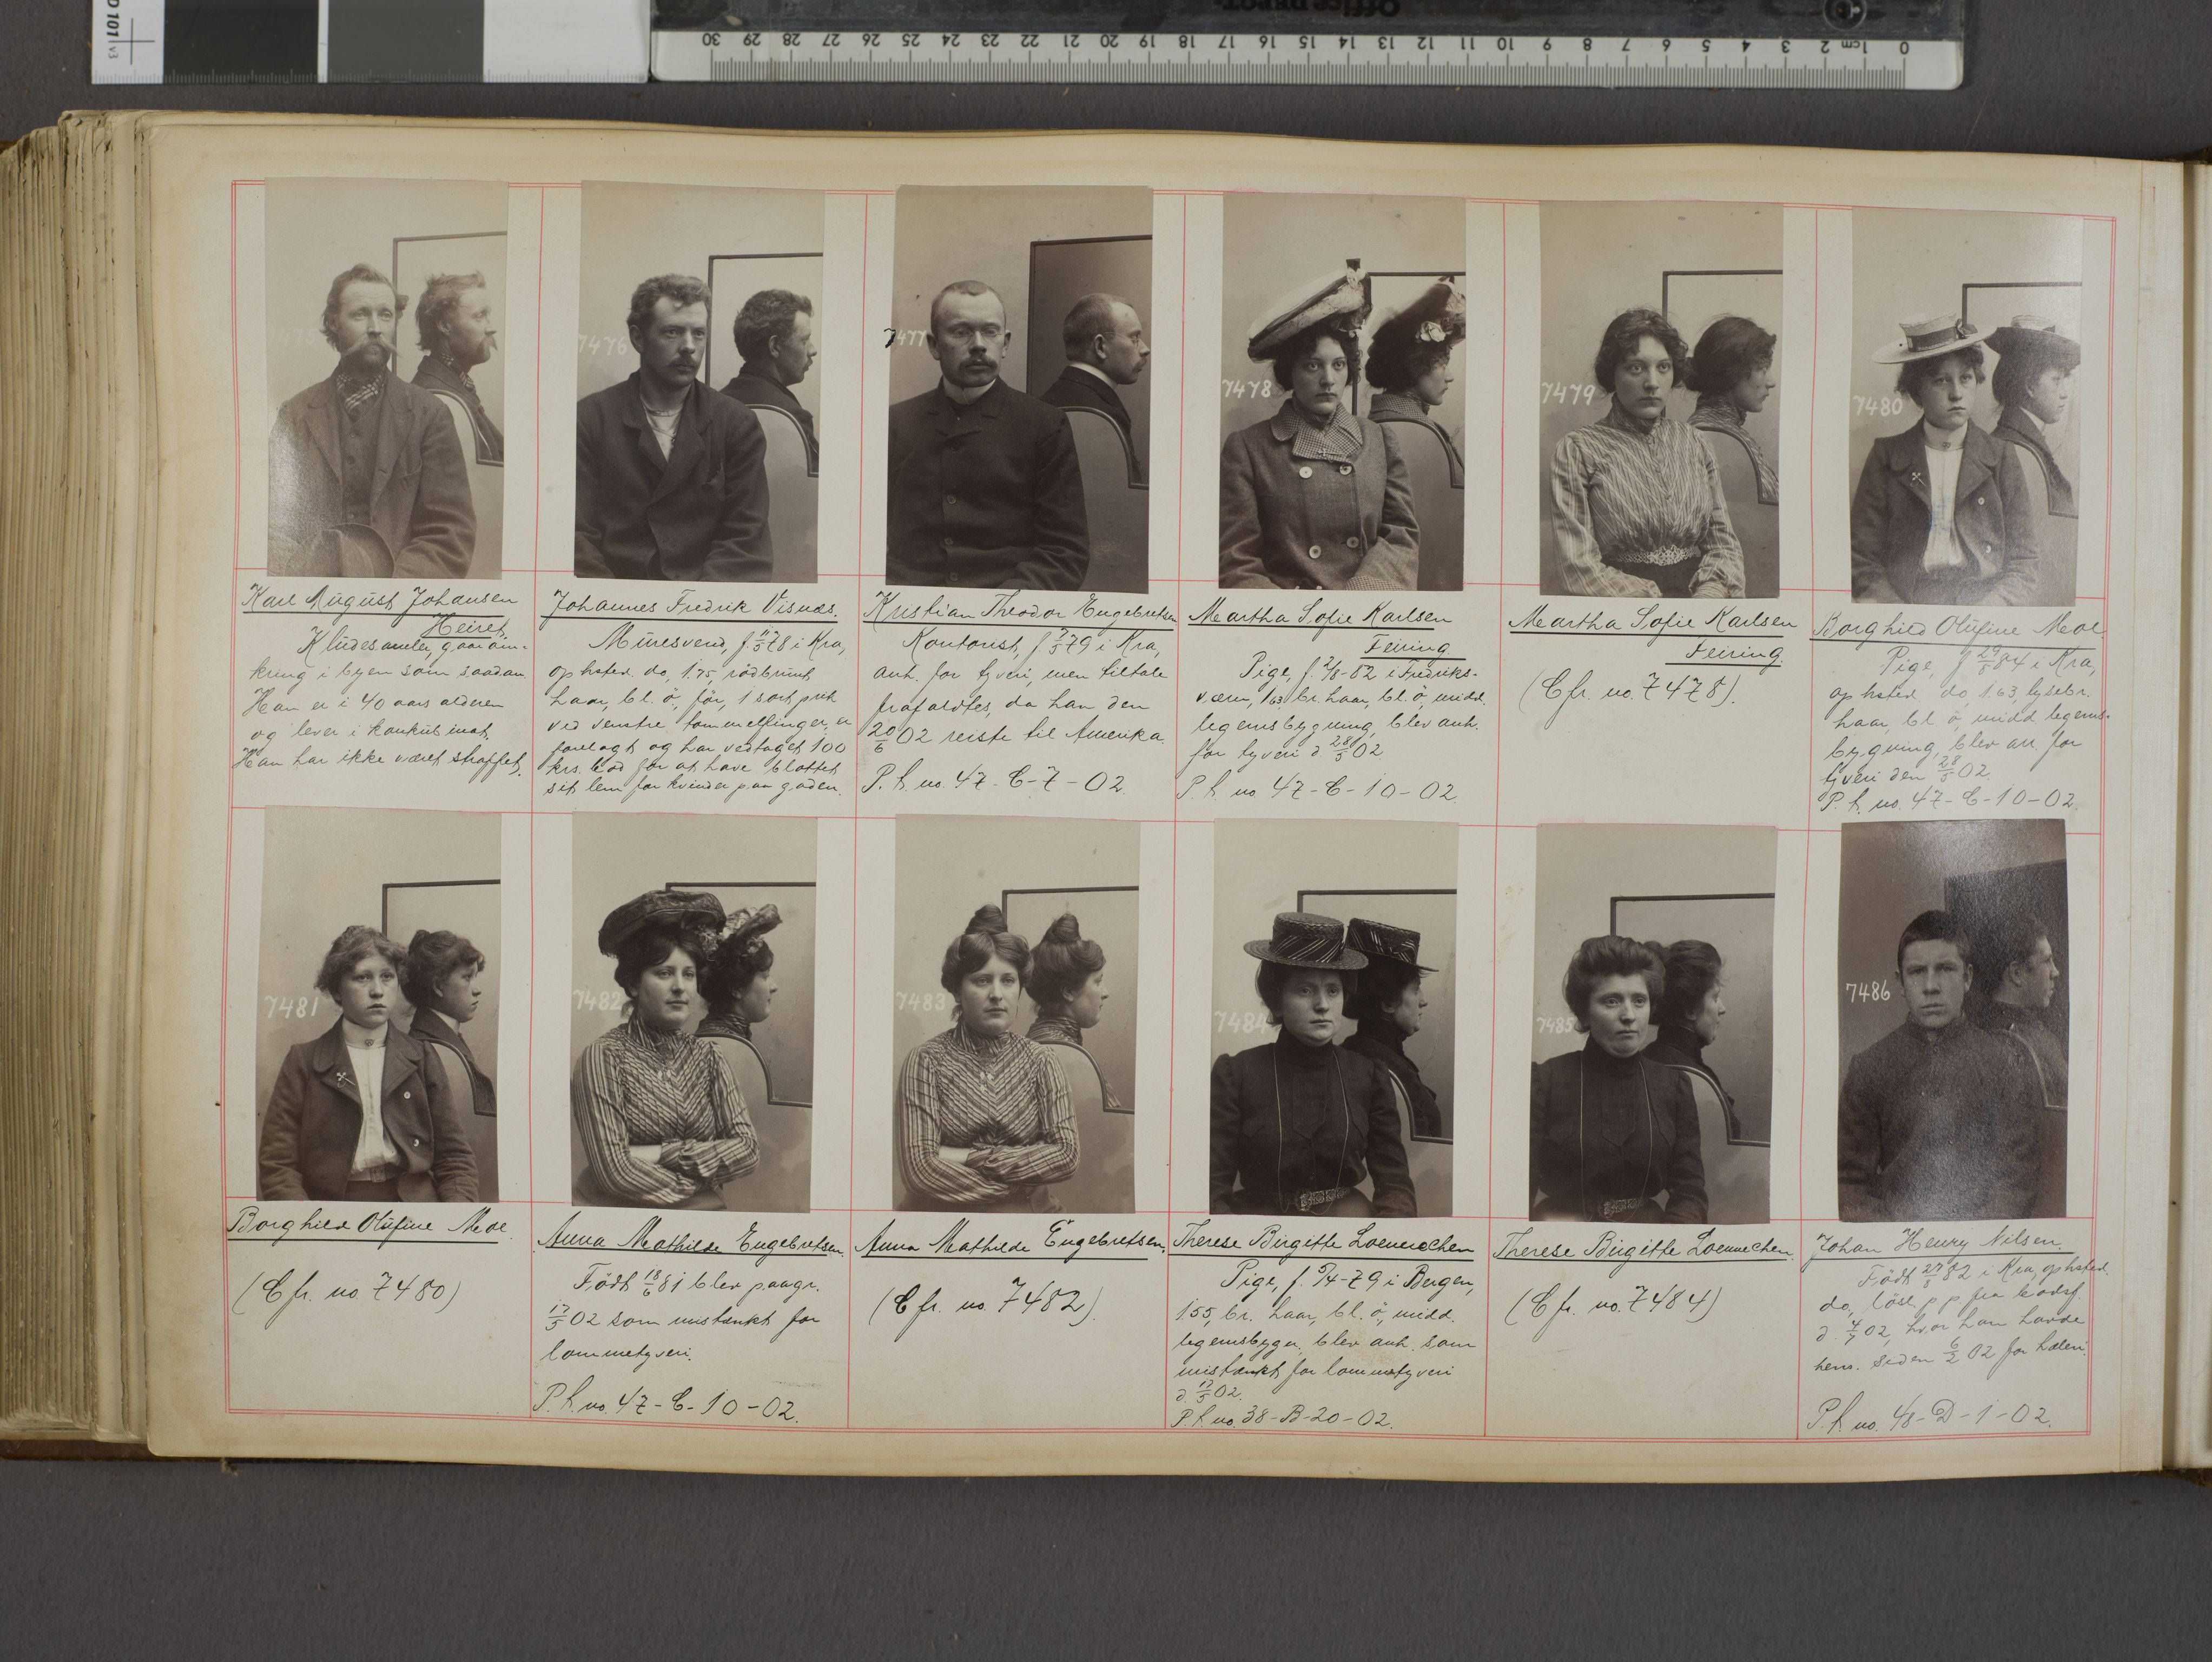 D 101 v3
Office DEPOT
30 29 28 27 26 25 24 23 22 21 20 19 18 17 16 15 14 13 12 11 10 9 8 7 6 5 4 3 2 1cm 0
7475
7476
7477
7478
7479
7480
Karl August Johansen
Heiret.
Kludesamler, gaar om-
kring i byen som saadan.
Han er i 40 aars alderen
og lever i konkubinat.
Han har ikke været straffet.
Johannes Fredrik Visnæs.
Muresvend, f. 11/5 78 i Kra,
ophsted. do, 1.75, rödbrunt
haar, bl. ö, för, 1 sort prik
ved venstre tommelfinger, er
forelagt og har vedtaget 100
krs. bod for at have blottet
sit lem for kvinder paa gaden.
Kristian Theodor Engebretsen
Kontorist, f. 7/5 79 i Kra,
anh. for tyveri, men tiltale
frafaldtes, da han den
20/6 02 reiste til Amerika.
P. h. no. 47-C-7-02.
Martha Sofie Karlsen
Feiring.
Pige, f. 2/8-82 i Fredriks-
værn, 1.63, br. haar, bl. ö, midd.
legemsbygning, blev anh.
for tyveri d 28/5 02.
P. h. no 47-C-10-02.
Martha Sofie Karlsen
Feiring.
(Cfr. no. 7478).
Borghild Olufine Moe.
Pige, f 29/8 84 i Kra,
ophsted do, 1.63, lysebr.
haar, bl. ö, midd legems-
bygning, blev an. for
tyveri den 28/5 02.
P. h. no. 47-C-10-02.
7481
7482
7483
7484
7485
7486
Borghild Olufine Moe.
(Cfr. no 7480)
Anna Mathilde Engebretsen.
Födt 18/6 81 blev paagr.
17/5 02 som mistænkt for
lommetyveri.
P. h. no. 47-C-10-02.
Anna Mathilde Engebretsen.
(Cfr. no. 7482).
Therese Birgitte Loennechen
Pige, f. 9/4-79 i Bergen,
155, br. haar, bl. ö, midd.
legemsbygn. blev anh. som
mistænkt for lommetyveri
d. 17/5 02.
P. h. no. 38-B-20-02.
Therese Birgitte Loennechen.
(Cfr. no. 7484)
Johan Henry Nilsen.
Födt 27/8 82 i Kra, ophsted.
do, lösl. p p fra bodsf.
d. 4/7 02, hvor han havde
hens. siden 6/2 02 for hæleri.
P. h. no. 48-D-1-02.